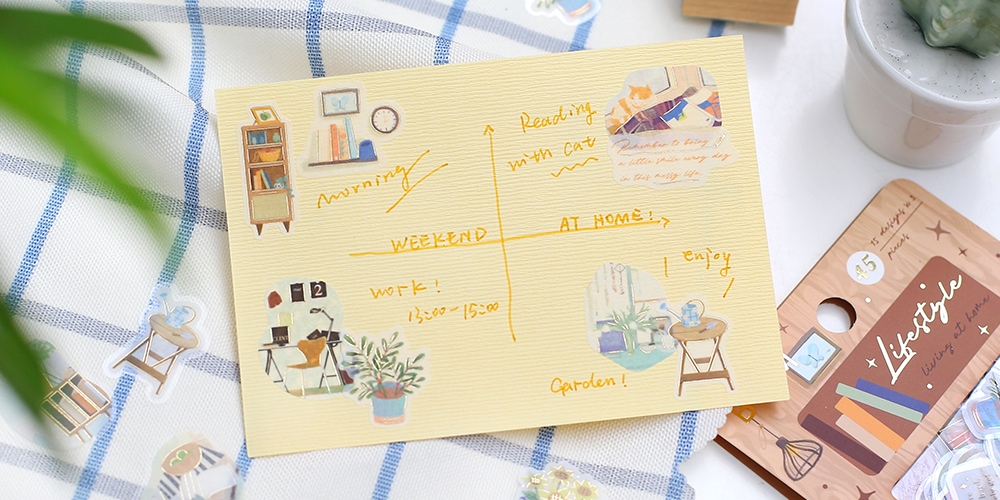 morning
Reading
with cat
Remember to bring
a little smile every day
in this messy life.
WEEKEND
AT HOME!
work!
13:00-15:00
enjoy
Garden!
2
45
Lifestyle
living at home